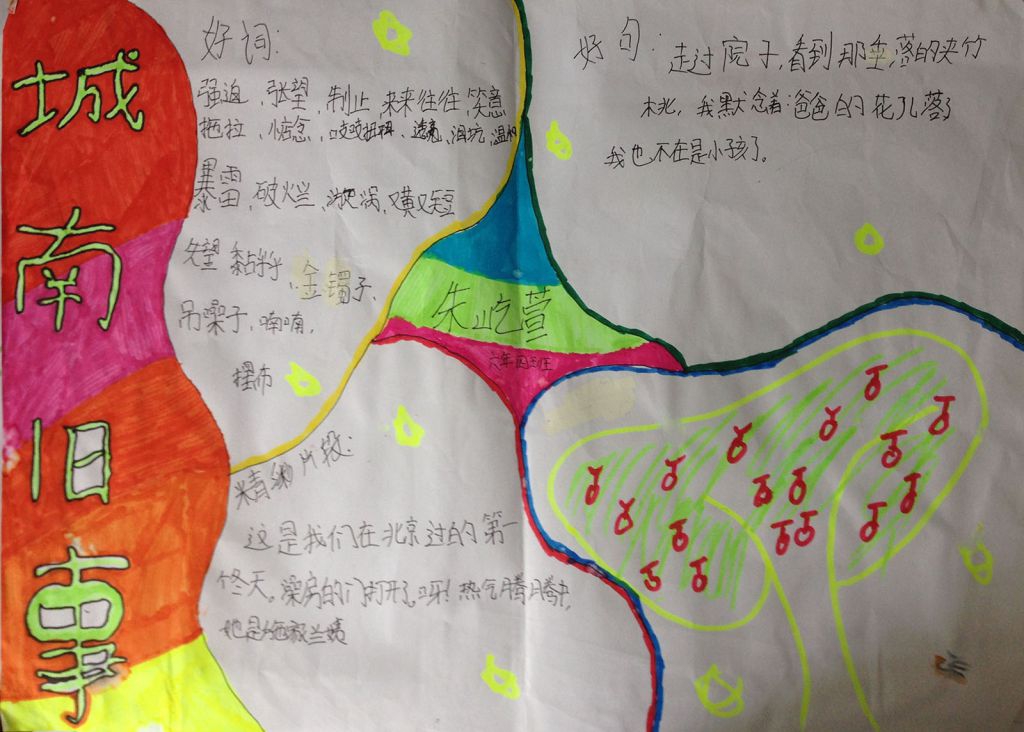 城南旧事
好词:
强迫、张望、制止、来来往往、笑意
拖拉、惦念、吱吱扭扭、透亮、泪坑、温和
暴雷、破烂、漩涡、又黄又短
失望 黏乎乎、金镯子、
吊嗓子、喃喃,
摆布
好句:走过院子,看到那垂落的夹竹
桃,我默念着:爸爸的花儿落了
我也不在是小孩了。
朱屹萱
六年四班
精彩片段:
这是我们在北京过的第一
冬天。澡房的门打开了。呀!热气腾腾中,
她是
兰姨